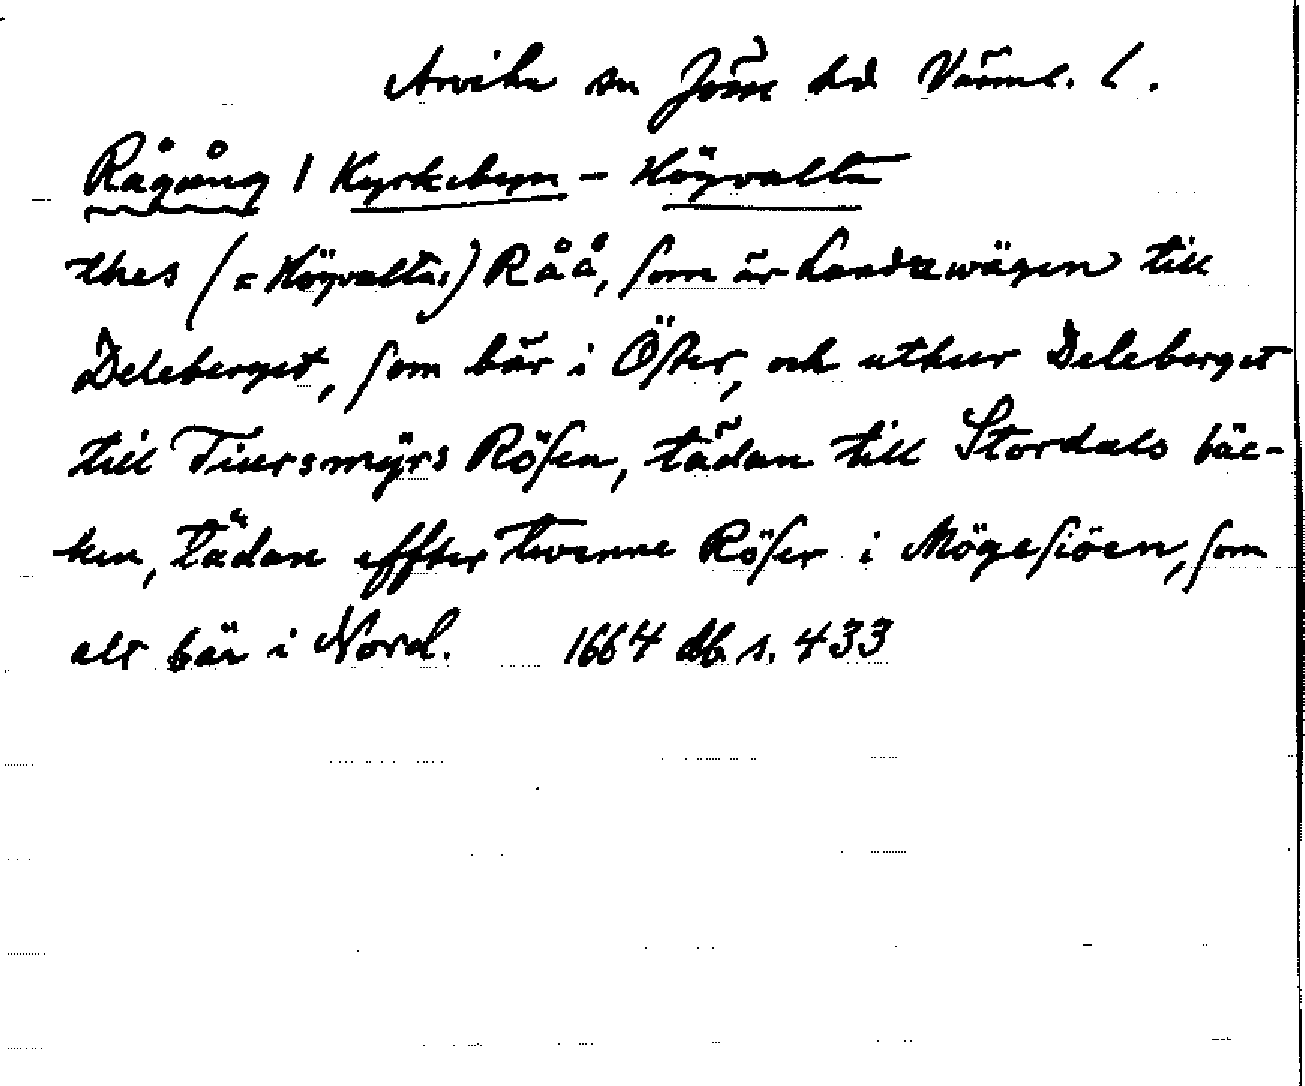 Arvika sn Jösse hd Värml. l.
Rågång 1 Kyrkebyn - Högvalta
thes (= Högvaltas) Råå, som är Landzwägen till
Deleberget, som bär i Öster, och uthur Deleberget
till Tiursmÿrs Rösen, tädan till Stordals bäc-
ken, tädan effter twenne Röser i Mögesiöen, som
alt bär i Nord. 1664 db. s. 433